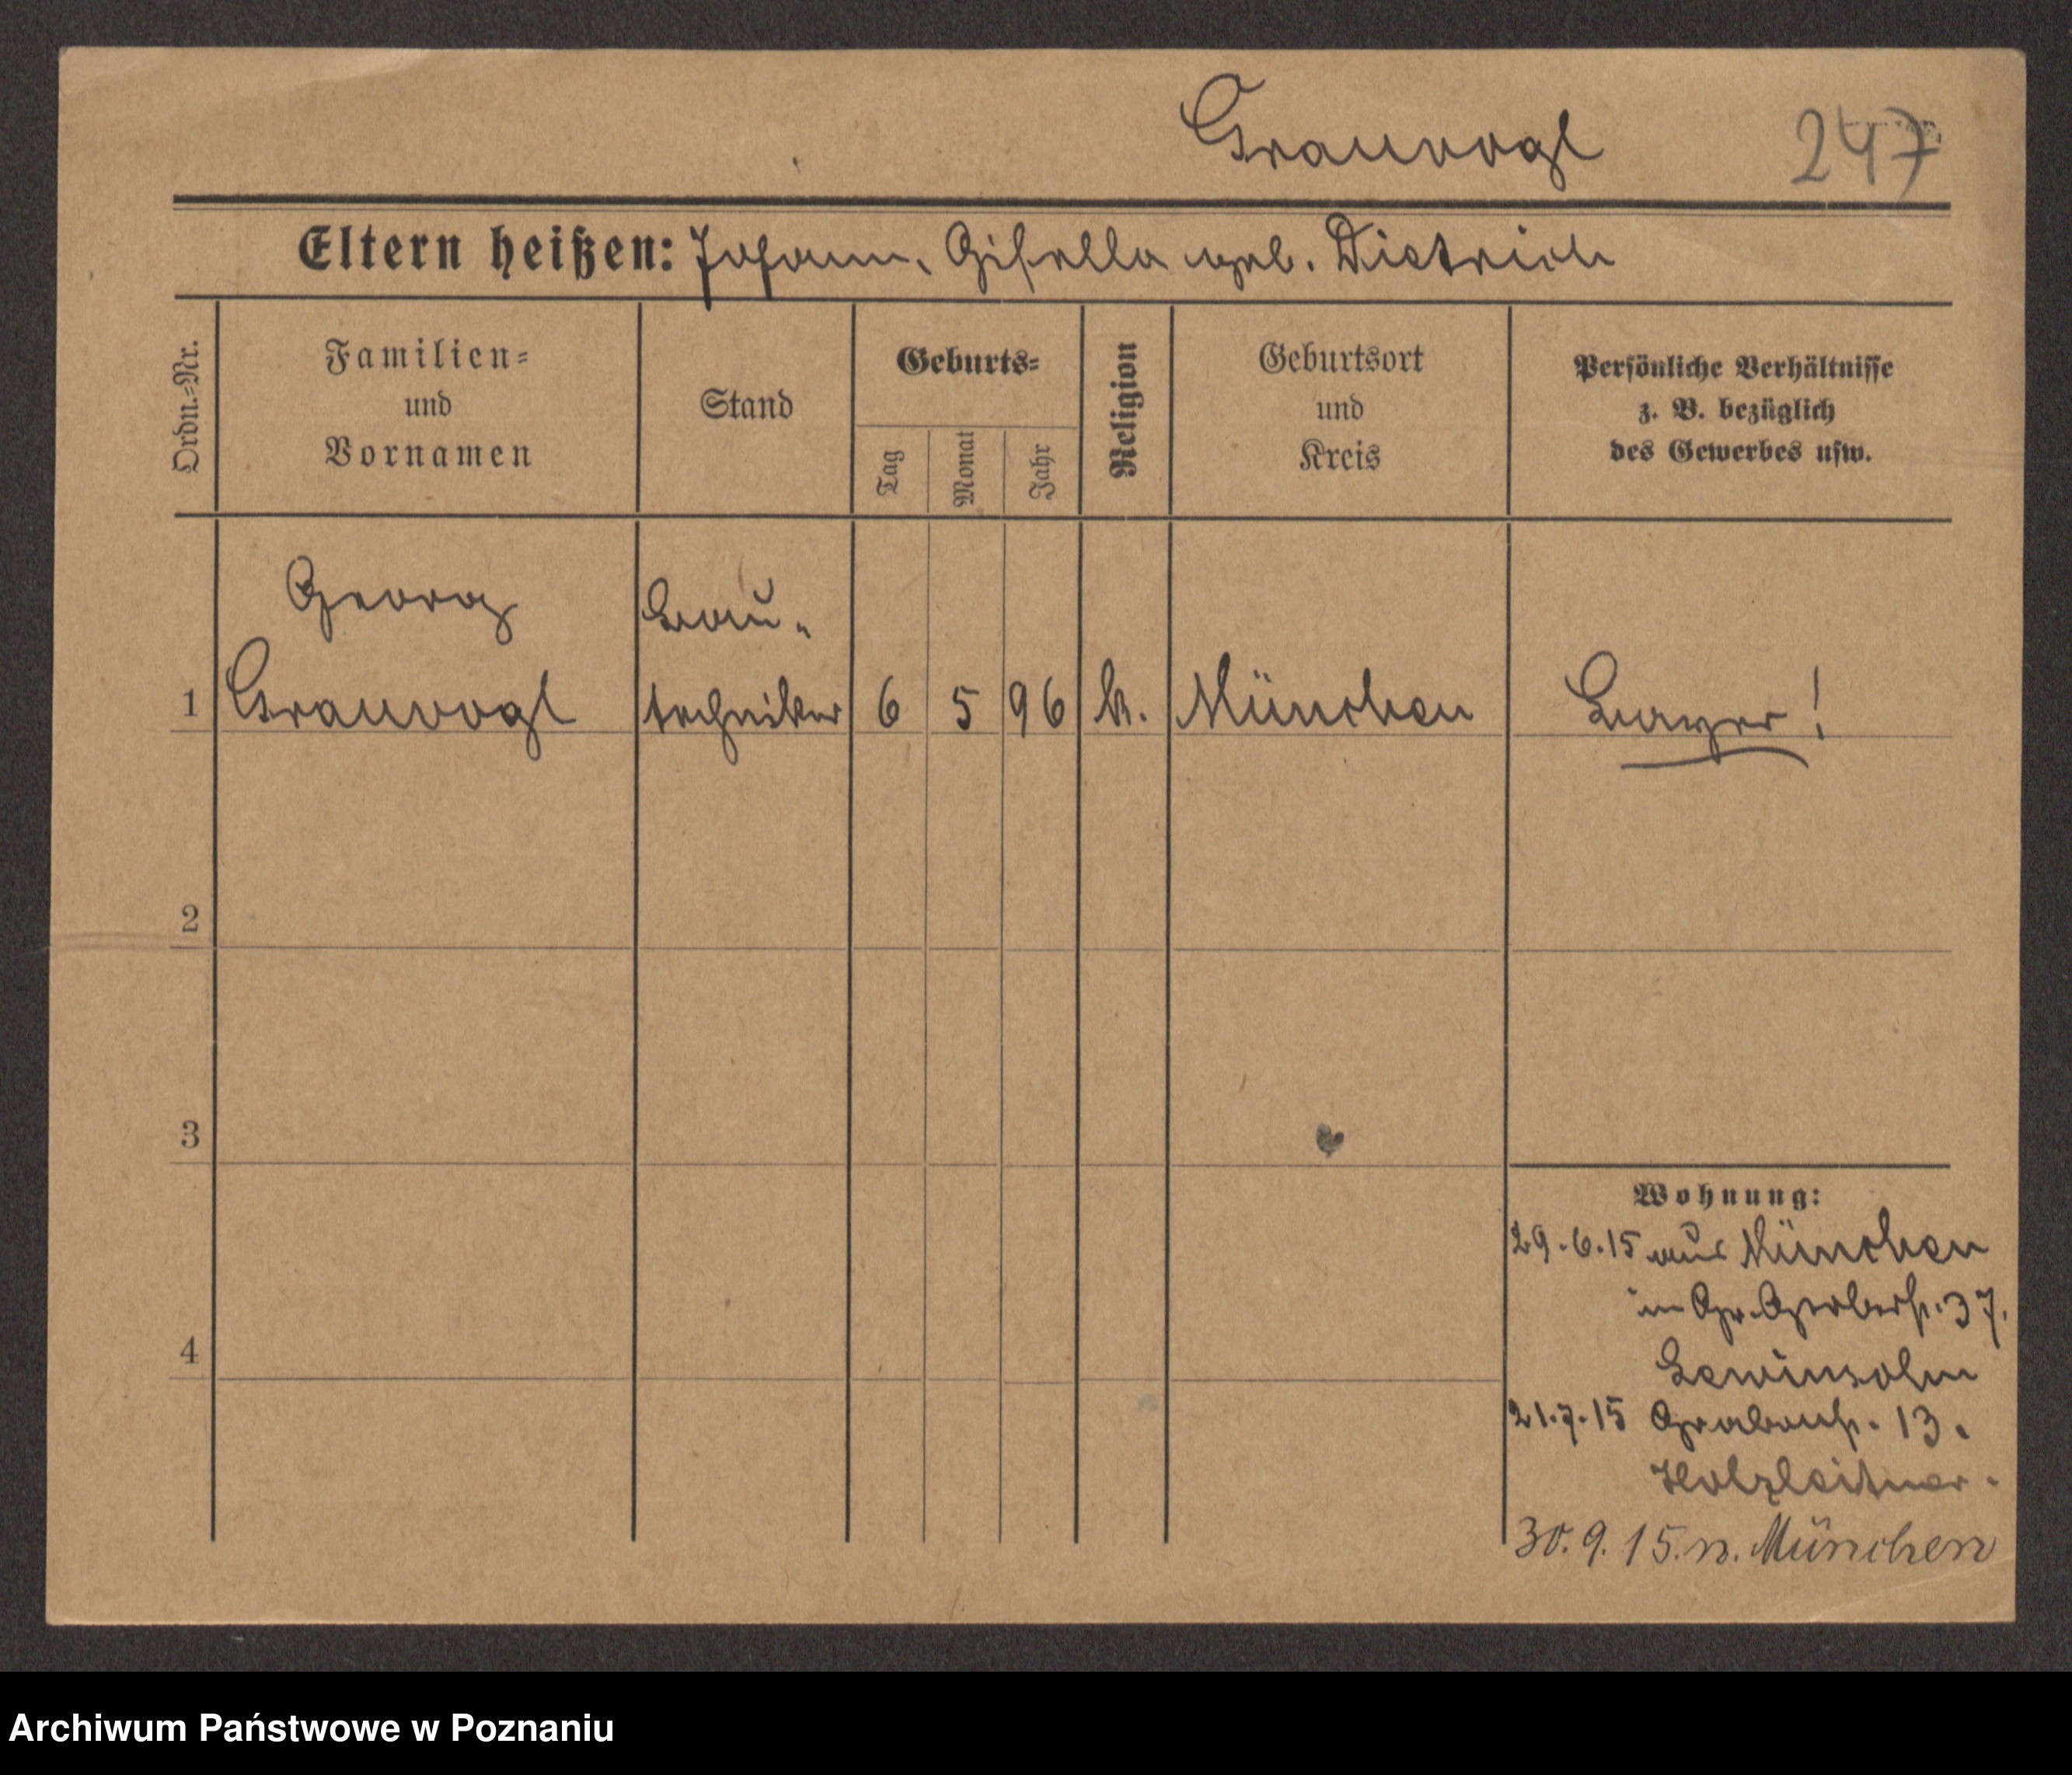 Grauvogl 247
Eltern heißen: Johann, Gisella geb. Dietrich
Ordn.-Nr.
Familien-
und
Vornamen
Stand
Geburts-
Tag
Monat
Jahr
Religion
Geburtsort
und
Kreis
Persönliche Verhältnisse
z. B. bezüglich
des Gewerbes usw.
Georg Bau-
1 Grauvogl techniker 6 5 96 k. München Bayer!
2
3
4
Wohnung:
29.6.15 aus München
in Gr. Gerberstr. 37.
Lewinsohn
21.7.15 Grabenstr. 13.
Holzleitner.
30.9.15. n. München
Archiwum Państwowe w Poznaniu